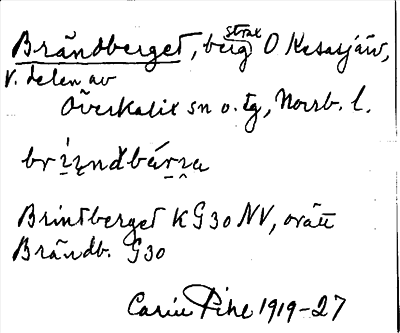 Brändberget, berg strax O Kesasjärv,
V. delen av
Överkalix sn o. tg, Norrb. l.
Brintberget KG30 NV, orätt
Brändb. G30
Carin Pihl 1919-27